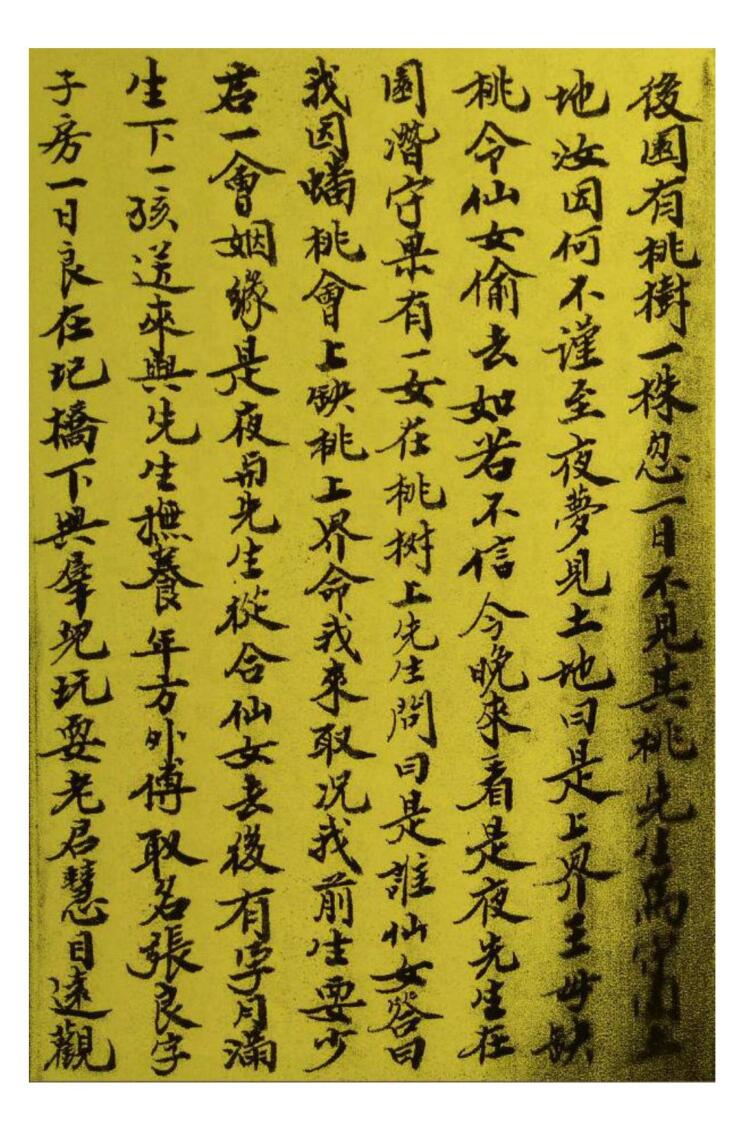 後園有桃樹一株忽一日不見其桃先生爲守園土
地汝因何不謹至夜夢見土地曰是上界王母缺
桃令仙女偷去如若不信今晚來看是夜先生在
園潛守果有一女在桃树上先生問曰是誰仙女答曰
我因蟠桃會上缺桃上界命我來取况我前生要少
君一會姻緣是夜與先生從合仙女去後有孕月滿
生下一孩送來與先生撫養年方外傅取名張良字
子房一日良在圯橋下與羣児玩耍老君慧目遠觀